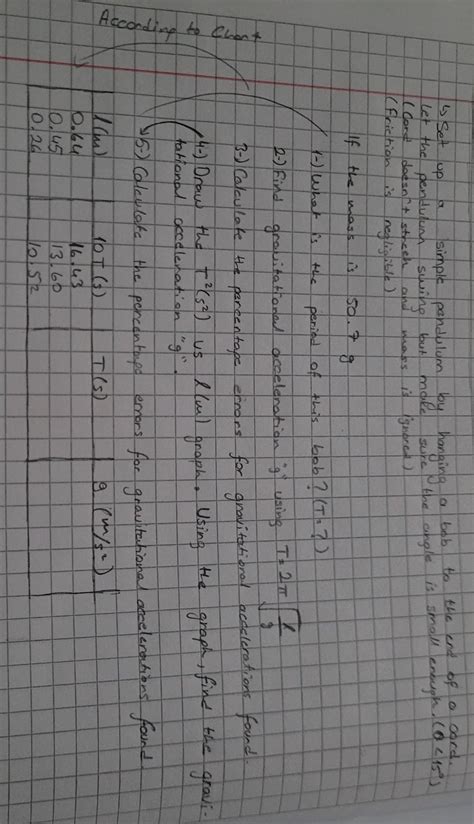 According to Chart
↳ Set up a simple pendulum by hanging a bob to the end of a cord.
Let the pendulum swing but make sure the angle is small enough. (θ<15°)
(Cord doesn't strech and mass is ignored)
(Friction is negligible)
If the mass is 50.7 g
1-) What is the period of this bob? (T=?)
2-) Find gravitational acceleration "g" using T=2π√l/g
3-) Calculate the percentage errors for gravitational accelerations found.
4-) Draw the T²(s²) vs l(m) graph. Using the graph, find the gravi-
tational acceleration "g".
5-) Calculate the percentage errors for gravitational accelerations found.
l(m) 10T(s) T(s) g (m/s²)
0.64 16.43
0.45 13.60
0.26 10.52